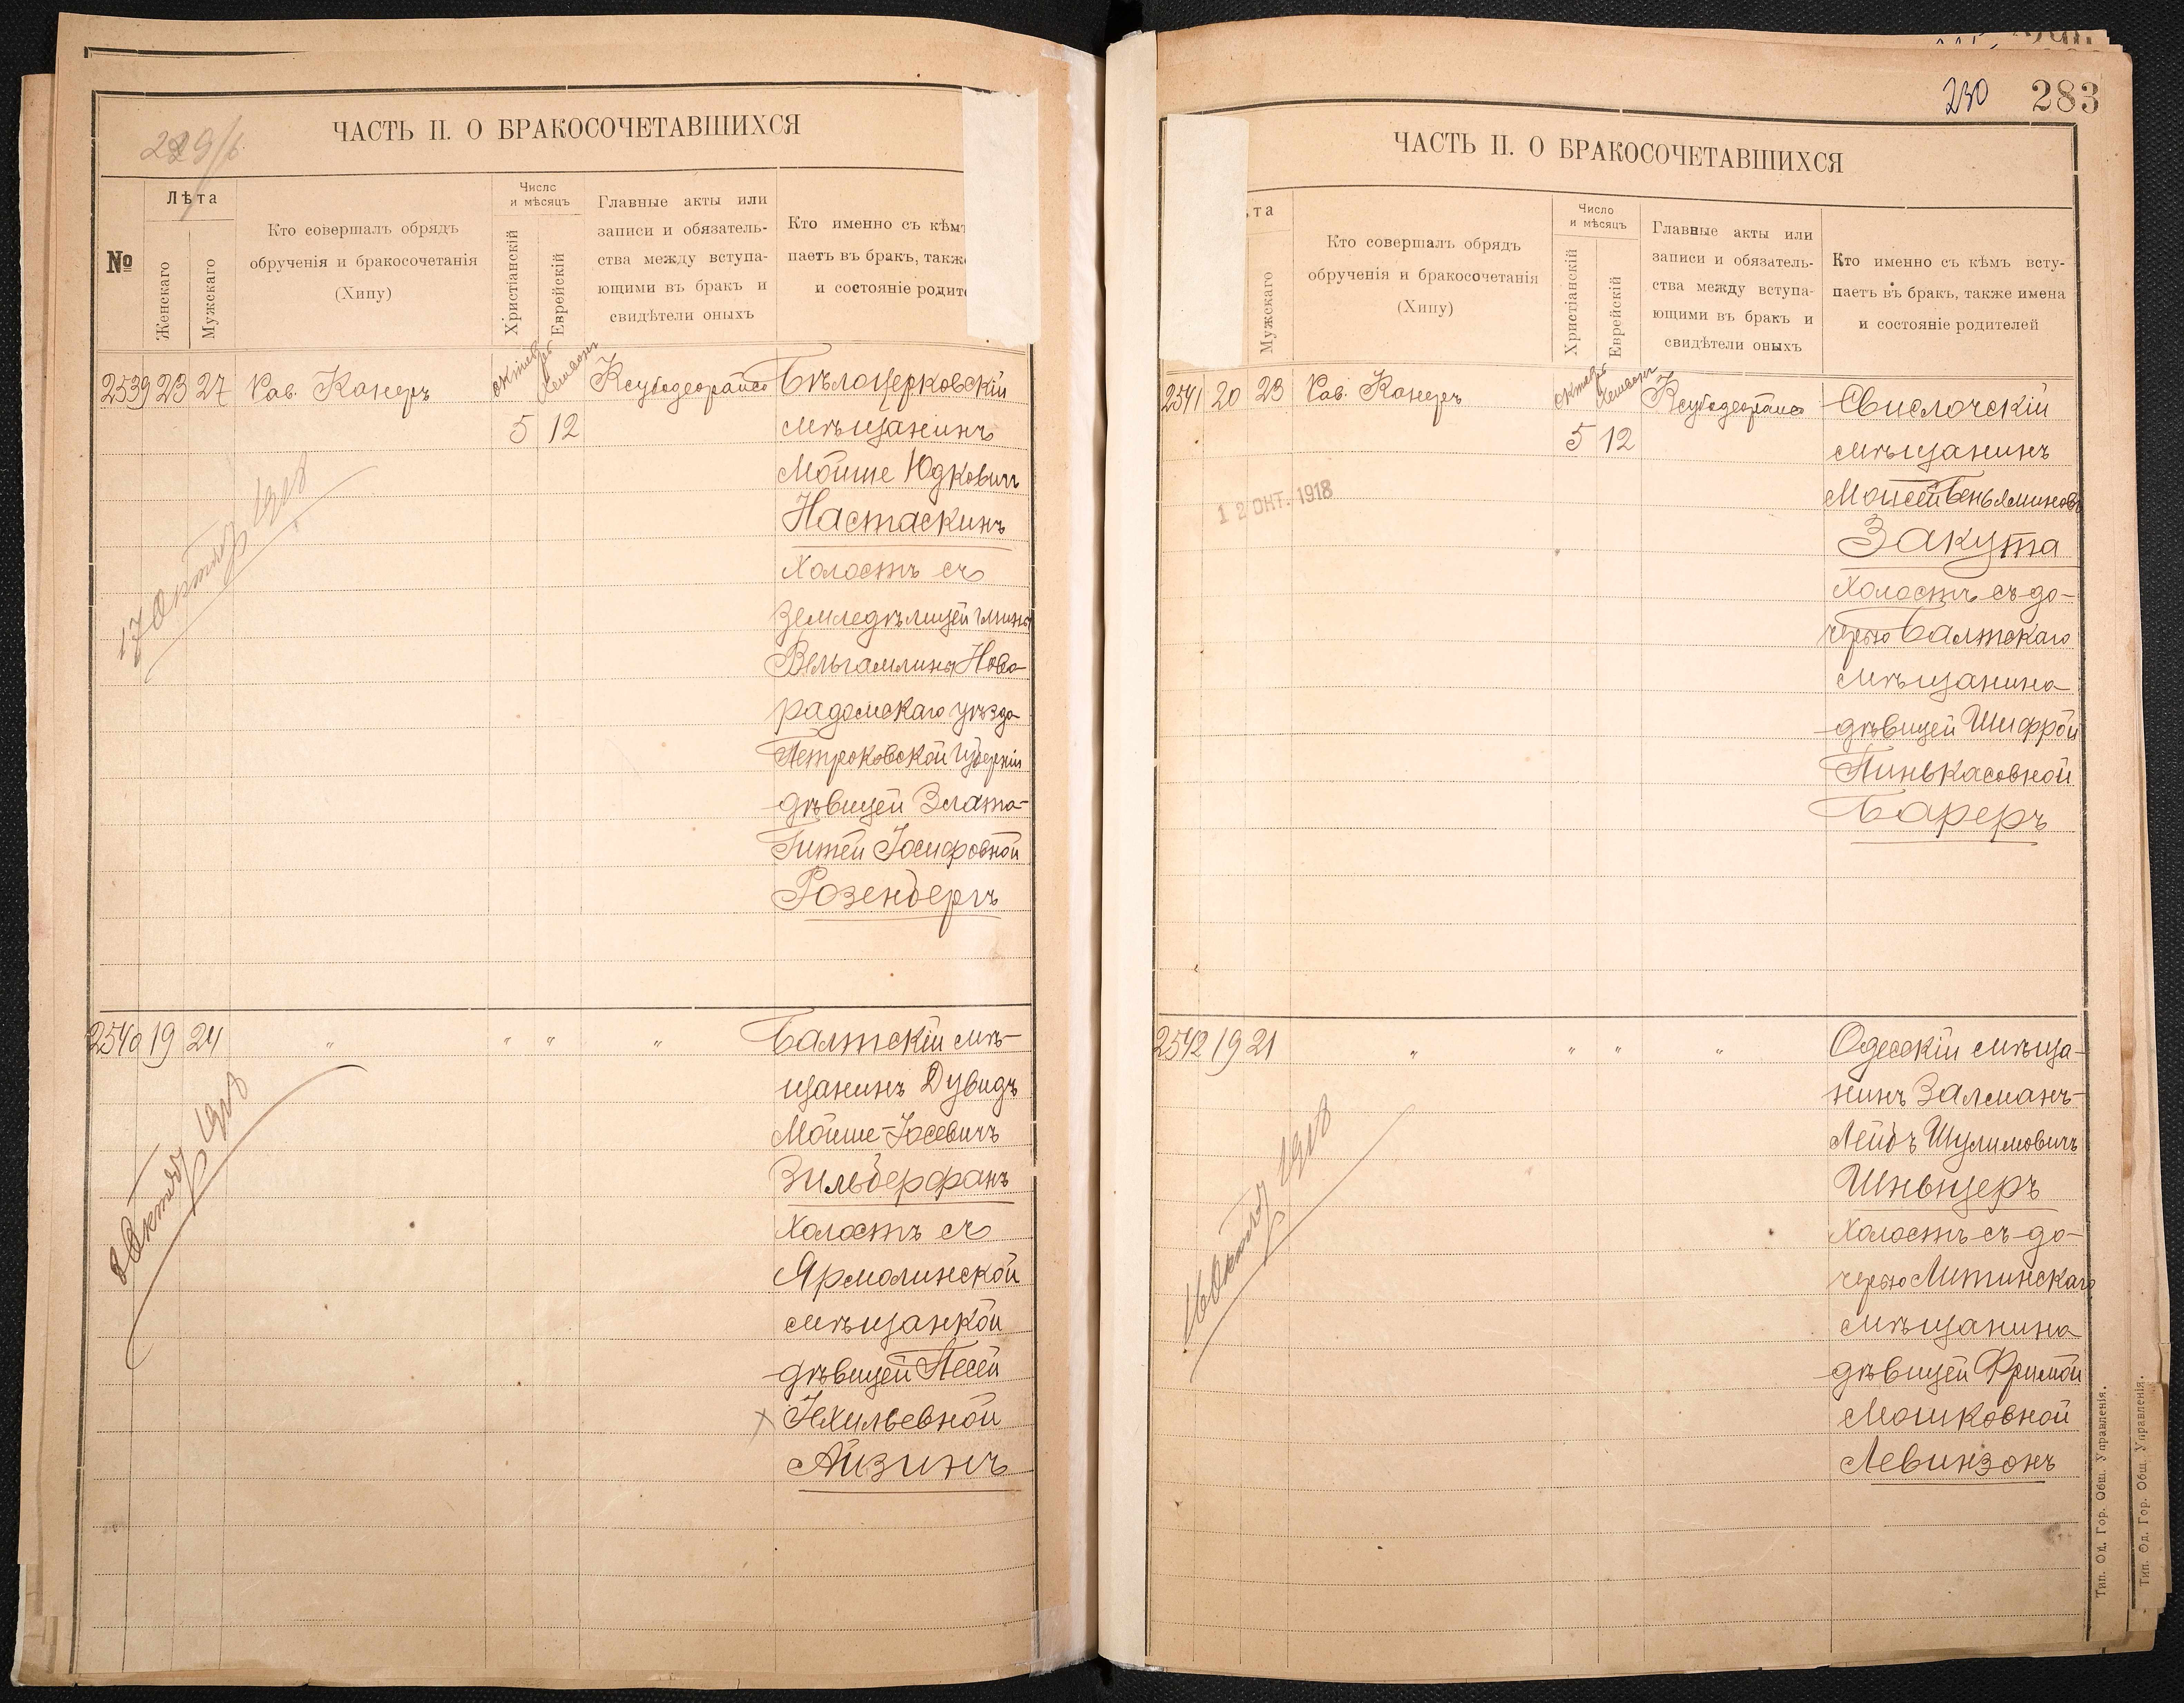 229/б
ЧАСТЬ II. О БРАКОСОЧЕТАВШИХСЯ
№
Лѣта
Женскаго
Мужскаго
Кто совершалъ обрядъ
обрученія и бракосочетанія
(Хипу)
Число
и мѣсяцъ
Христіанскій
Еврейскій
Главные акты или
записи и обязатель-
ства между вступа-
ющими въ бракъ и
свидѣтели оныхъ
Кто именно съ кѣмъ
паетъ въ бракъ, также
и состояніе родит
2539 23 27 Рав. Канеръ
октябр Хешвонъ
5 12
Бѣлоцерковскій
мѣщанинъ
Мойше Юдковичъ
Настаскинъ
Холостъ съ
Земледѣлицей гмины
Новорадомскаго уѣзда
Петроковской Губерніи
дѣвицей Злата-
Гитей Іосифовной
Розенбергъ
17 Октябр 1918
2540 19 24 " " " "
Балтскій мѣ-
щанинъ Дувидъ
Мойше-Іосевичъ
Зильберфанъ
Холостъ съ
Ярмолинской
мѣщанкой
дѣвицей Песей
Ихильевной
Айзинъ
Октябр 1918
230 283
ЧАСТЬ II. О БРАКОСОЧЕТАВШИХСЯ
ѣта
Мужскаго
Кто совершалъ обрядъ
обрученія и бракосочетанія
(Хипу)
Число
и мѣсяцъ
Христіанскій
Еврейскій
Главные акты или
записи и обязатель-
ства между вступа-
ющими въ бракъ и
свидѣтели оныхъ
Кто именно съ кѣмъ всту-
паетъ въ бракъ, также имена
и состояніе родителей
2541 20 23 Рав. Канеръ
октябр Хешвонъ
5 12
Свислочскій
мѣщанинъ
Моисей Беньяминовъ
Закута
Холостъ съ до-
черью Балтскаго
мѣщанина
дѣвицей Шифрой
Пинькасовной
Бареръ
12 ОКТ. 1918
2542 19 21 " " " "
Одесскій мѣща-
нинъ Залманъ-
Лейбъ Шулимовичъ
Шньцеръ
Холостъ съ до-
черью Литинскаго
мѣщанина
дѣвицей Фримой
Мошковной
Левинзонъ
16 Октябр 1918
Тип. Од. Гор. Общ. Управленія.
Тип. Од. Гор. Общ. Управленія.